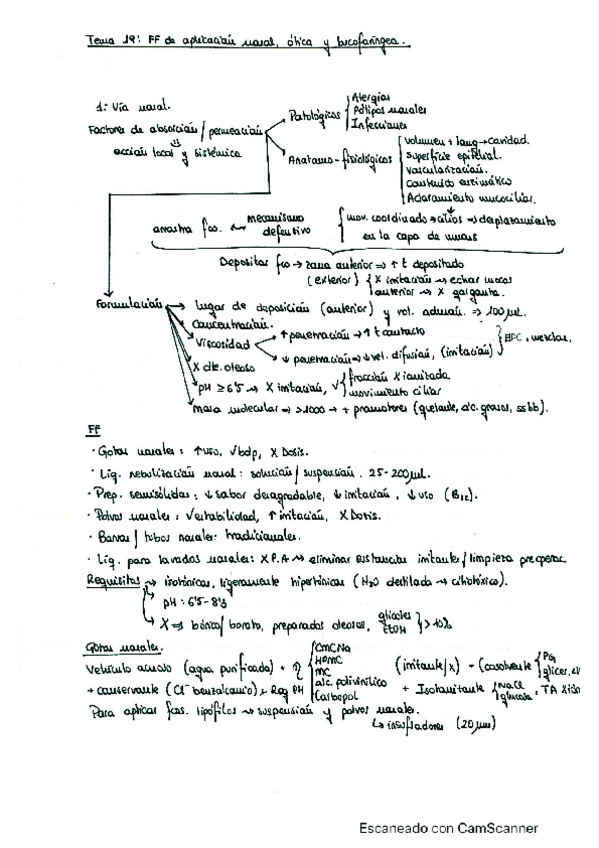 Tema 19: FF de aplicación nasal, ótica y bucofaríngea.
1. Vía nasal.
Factores de absorción/permeación
acción local y sistémica
Patológicos
Alergias
Pólipos nasales
Infecciones
Anatomo-fisiológicos
Volumen + long → cavidad.
Superficie epitelial.
Vascularización.
Contenido enzimático
Aclaramiento mucociliar.
arrastra fco. mecanismo defensivo
mov. coordinado → cilios ⇒ desplazamiento
en la capa de mucus
Depositar fco → zona anterior ⇒ ↑ t depositado
(exterior)
X irritación → echar mocos
anterior → X garganta.
Formulación
Lugar de deposición (anterior) y vol. admón. ⇒ 100 µL.
Concentración.
Viscosidad
↑ penetración → ↑ t contacto
↓ penetración ⇒ ↓ vel. difusión, (irritación)
HPC, mezclas.
X dte. oleoso
pH ≥ 6'5 → X irritación, √
fracción X ionizada
movimiento ciliar
Masa molecular ⇒ >1000 → + promotores (quelante, ác. grasos, ss bb).
FF
· Gotas nasales: ↑ uso, √ bdp, X Dosis.
· Liq. nebulización nasal: solución/suspensión. 25-200 µL.
· Prep. semisólidas: ↓ sabor desagradable, ↓ irritación, ↓ uso (B12).
· Polvos nasales: √ estabilidad, ↑ irritación, X Dosis.
· Barras/tubos nasales: tradicionales.
· Liq. para lavados nasales: X P.A → eliminar sustancias irritantes/limpieza preoperac.
Requisitos → isotónicas, ligeramente hipertónicas (H2O destilada → citotóxico).
pH: 6'5-8'3
X ⇒ bórico/borato, preparados oleosos, glicoles EtOH } > 10%
Gotas nasales.
Vehículo acuoso (agua purificada) + η
CMCNa
HPMC
MC
alc. polivinílico
Carbopol
(irritante/x) + Cosolvente
PG
glicer.
+ conservante (Cl⁻ benzalconio) + Reg PH
+ Isotonizante
NaCl
glucosa
+ TA
Para aplicar fcos. lipófilos → suspensión y polvos nasales.
↳ insufladores (20 µm)
Escaneado con CamScanner